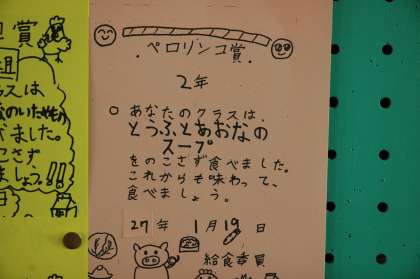 賞
組
スは
のいため
べました。
こさず
ましょう。!!
ペロリンコ賞
2年
○ あなたのクラスは、
とうふとあおなの
スープ
をのこさず食べました。
これからも味わって、
食べましょう。
27年 1月19日
給食委員